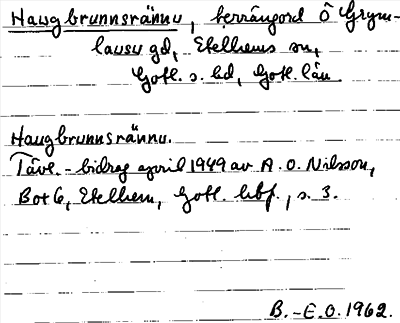 Haugbrunnsrännu, terrängord Ö Grym-
lausu gd, Etelhems sn,
Gotl. s. hd, Gotl. län
Haugbrunnsrännu.
Tävl.-bidrag april 1949 av A. O. Nilsson,
Box 6, Etelhem, Gotl. hbf., s. 3.
B.-E.O. 1962.